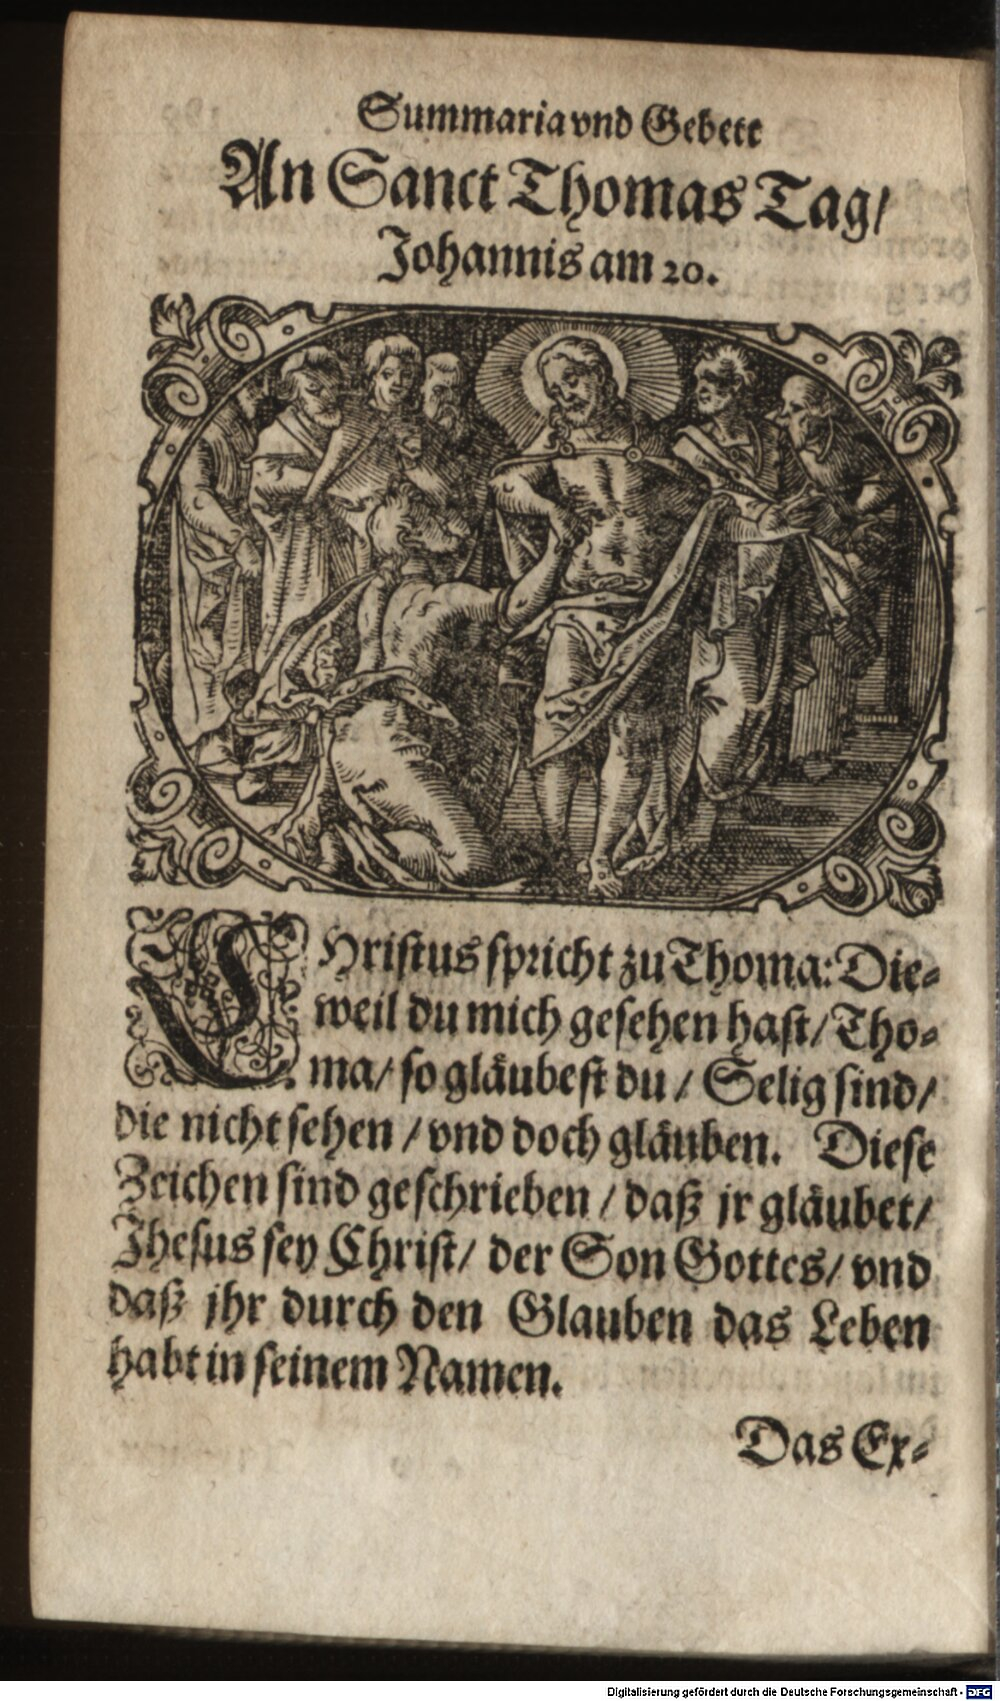 Summaria vnd Gebett
An Sanct Thomas Tag/
Johannis am 20.
CHristus spricht zu Thoma: Die-
weil du mich gesehen hast/ Tho-
ma/ so gläubest du/ Selig sind/
die nicht sehen/ vnd doch gläuben. Diese
Zeichen sind geschrieben/ daß jr gläubet/
Jhesus sey Christ/ der Son Gottes/ vnd
daß jhr durch den Glauben das Leben
habt in seinem Namen.
Das Ex-
Digitalisierung gefördert durch die Deutsche Forschungsgemeinschaft - DFG